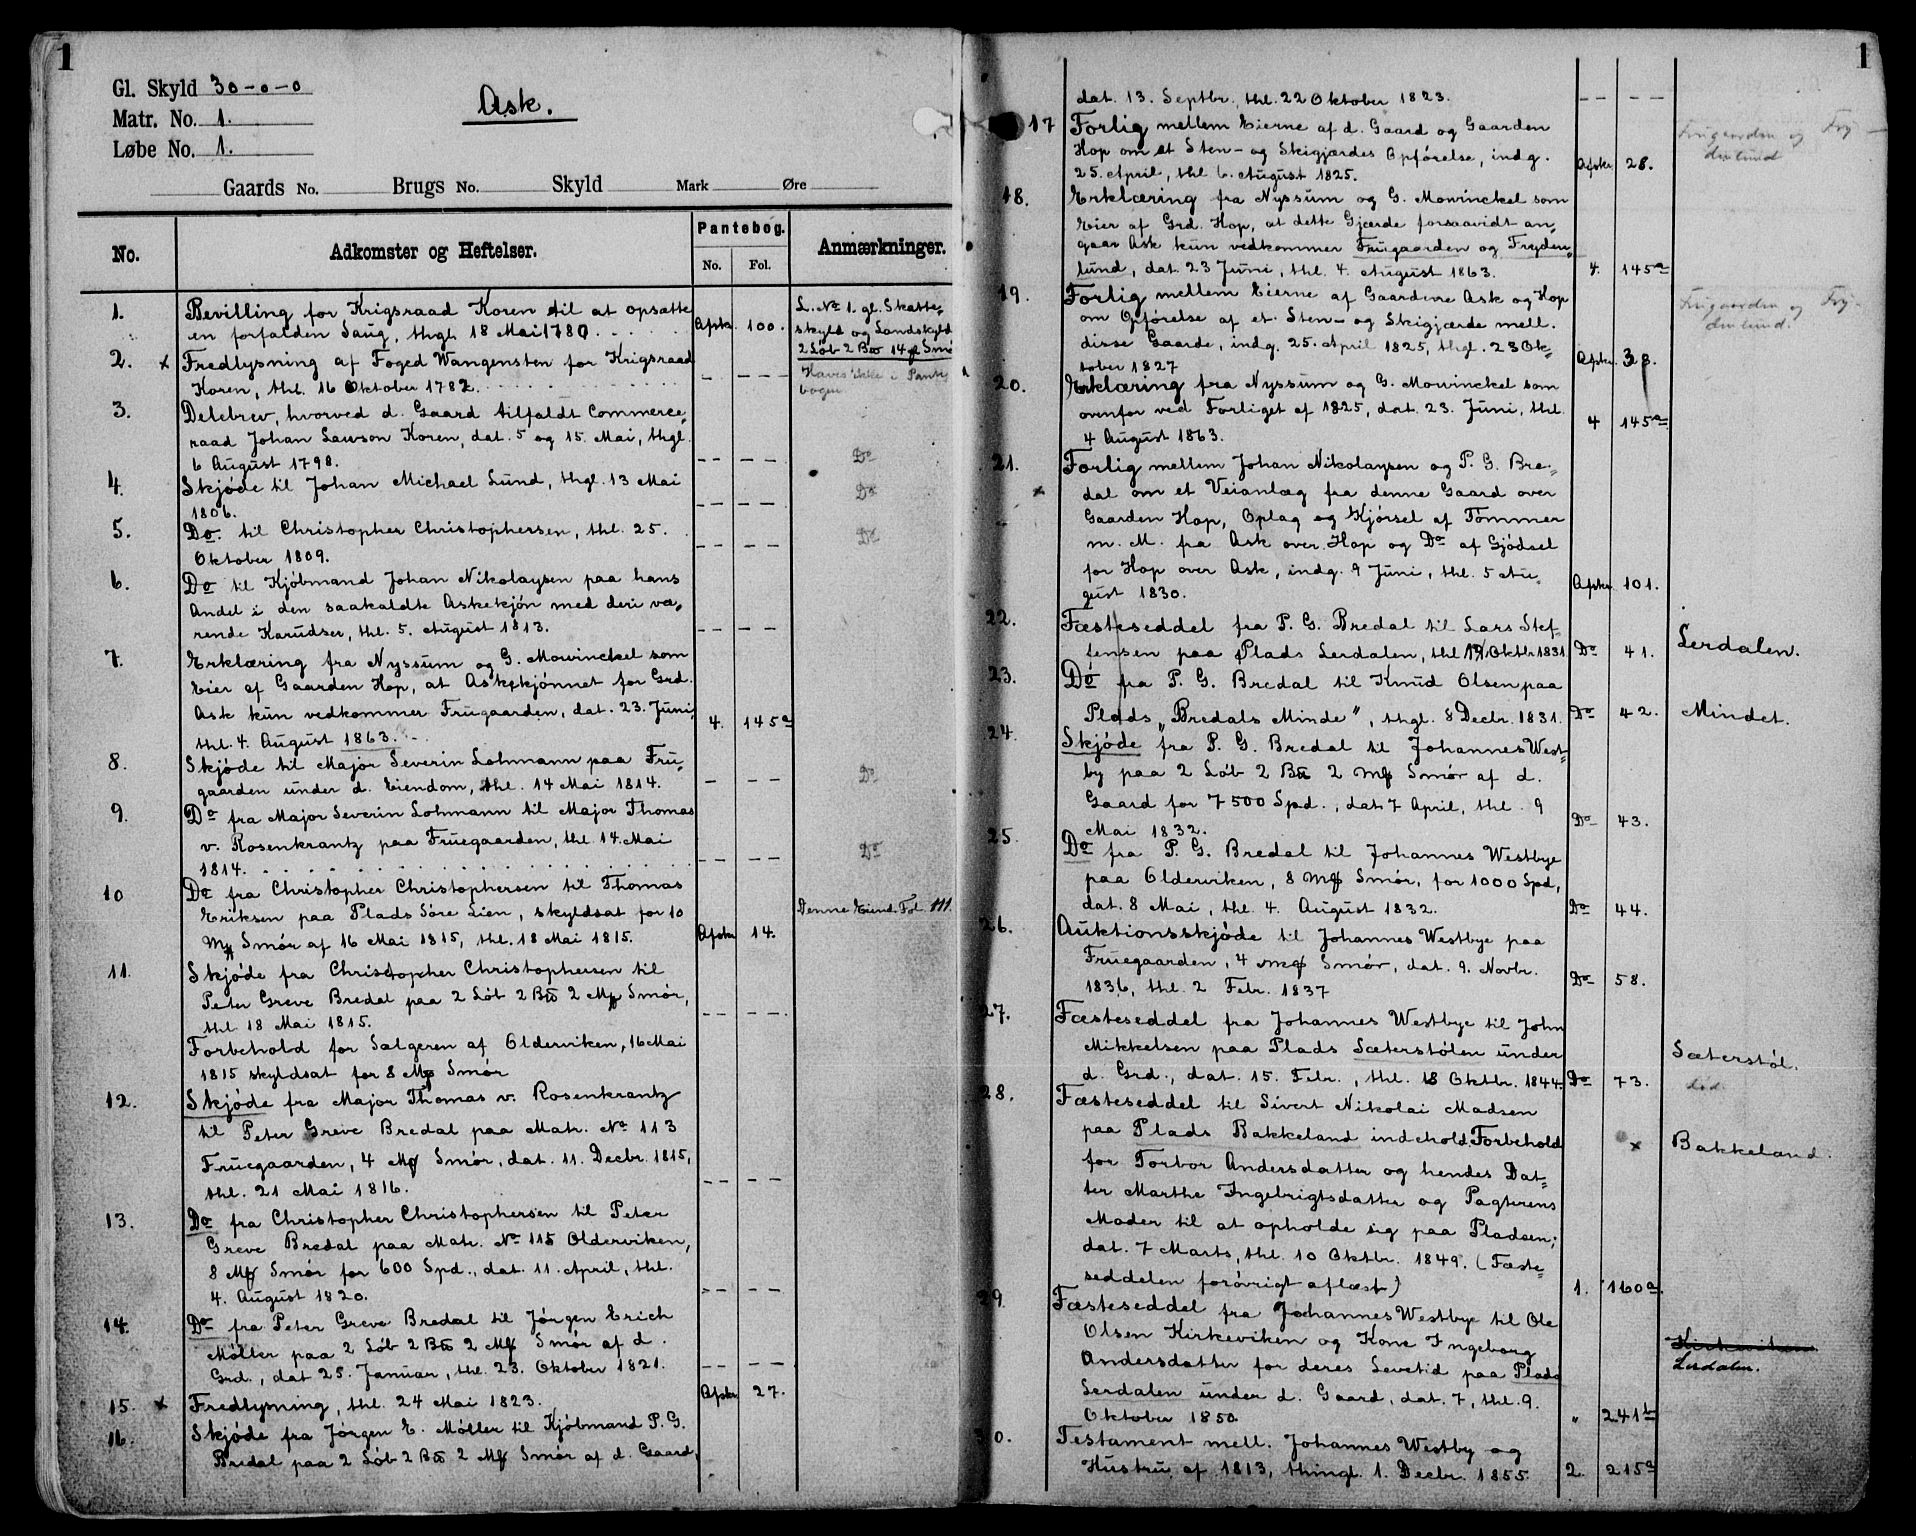 1
Gl. Skyld 30-0-0
Ask.
Matr. No. 1.
Løbe No. 1.
Gaards No. Brugs No. Skyld Mark Øre
No. Adkomster og Heftelser. Pantebog. Anmærkninger.
No. Fol.
1. Bevilling for Krigsraad Koren til at opsætte L. No 1. gl. Skatte-
en forfalden Saug, thgl. 18 Mai 1780. Afskr. 100. skyld og Landskyld
2 Løb 2 Bpd 14 Mk Smør
2. x Fredlysning af Foged Wangensten for Krigsraad Haves ikke i Pante
Koren, thl. 16 Oktober 1782. - -- bogen
3. Delebrev, hvorved d. Gaard tilfaldt Commerce-
raad Johan Lawson Koren, dat. 5 og 15. Mai, thgl.
6 August 1798. -- -- Do
4. Skjøde til Johan Michael Lund, thgl. 13 Mai Do
1806. -- --
5. Do. til Christopher Christophersen, thl. 25. Do
Oktober 1809. -- --
6. Do til Kjøbmand Johan Nikolaysen paa hans
Andel i den saakaldte Askekjøn med deri væ-
rende Karudser, thl. 5. August 1813. -- --
7. Erklæring fra Nyssum og G. Mowinckel som
Eier af Gaarden Hop, at Askekjønnet for Grd.
Ask kun vedkommer Frugaarden, dat. 23. Juni, 4. 145a
thl. 4. August 1863.
8. Skjøde til Major Severin Lohmann paa Fru-
gaarden under d. Eiendom, thl. 14 Mai 1814. - -- Do
9. Do fra Major Severin Lohmann til Major Thomas
v. Rosenkrantz paa Fruegaarden, thl. 14. Mai
1814. -- -- Do
10 Do fra Christopher Christophersen til Thomas
Eriksen paa Plads Søre Lien, skyldsat for 10 Denne Eiend. Fol. 111.
Mk Smør af 16 Mai 1815, thl. 18 Mai 1815. Afskr 14.
11. Skjøde fra Christopher Christophersen til
Peter Greve Bredal paa 2 Løb 2 Bpd 2 Mk Smør,
thl. 18 Mai 1815. -- --
Forbehold for Sælgeren af Olderviken, 16 Mai
1815 skyldsat for 8 Mk Smør
12. Skjøde fra Major Thomas v. Rosenkrantz
til Peter Greve Bredal paa Matr. No 113
Fruegaarden, 4 Mk Smør, dat. 11. Decbr. 1815,
thl. 21 Mai 1816. -- --
13. Do fra Christopher Christophersen til Peter
Greve Bredal paa Matr. No 115 Olderviken,
8 Mk Smør for 600 Spd., dat. 11. April, thl.
4. August 1820. -- --
14. Do fra Peter Greve Bredal til Jørgen Erich
Møller paa 2 Løb 2 Bpd 2 Mk Smør af d.
Grd., dat 25. Januar, thl. 23. Oktober 1821. -- --
15. x Fredlysning, thl. 24 Mai 1823. Afskr 27.
16. Skjøde fra Jørgen E. Møller til Kjøbmand P. G.
Bredal paa 2 Løb 2 Bpd 2 Mk Smør af d. Gaard,
1
dat. 13. Septbr., thl. 22 Oktober 1823. -- --
17 Forlig mellem Eierne af d. Gaard og Gaarden Frugaarden og Fry-
Hop om et Sten- og Skigjærdes Opførelse, indg. Afskr 28. denlund
25. April, thl 6. August 1825.
18. Erklæring fra Nyssum og G. Mowinckel som
Eier af Grd. Hop, at dette Gjærde forsaavidt an-
gaar Ask kun vedkommer Frugaarden og Fryden-
lund, dat. 23 Juni, thl. 4. August 1863. 4. 145a
19. Forlig mellem Eierne af Gaardene Ask og Hop Frugaarden og Fry-
om Opførelse af et Sten- og Skigjærde mell. denlund.
disse Gaarde, indg. 25. April 1825, thgl. 23 Ok-
tober 1827 Afskr 38.
20. Erklæring fra Nyssum og G. Mowinckel som
ovenfor ved Forliget af 1825, dat. 23. Juni, thl.
4 August 1863. 4 145a
21. Forlig mellem Johan Nikolaysen og P. G. Bre-
x dal om et Veianlæg fra denne Gaard over
Gaarden Hop, Oplag og Kjørsel af Tømmer
m. M. fra Ask over Hop og Do af Gjødsel
for Hop over Ask, indg. 9 Juni, thl. 5 Au-
gust 1830. Afskr 101.
22. Fæsteseddel fra P. G. Bredal til Lars Stef-
fensen paa Plads Lerdalen, thl Oktbr 1831 Do 41. Lerdalen.
23. Do fra P. G. Bredal til Knud Olsen paa
Plads "Bredals Minde", thgl. 8 Decbr. 1831. Do 42. Mindet.
24. Skjøde fra P. G. Bredal til Johannes West-
by paa 2 Løb 2 Bpd 2 Mk Smør af d.
Gaard for 7500 Spd., dat 7 April, thl. 9
Mai 1832. Do 43.
25. Do fra P. G. Bredal til Johannes Westbye
paa Olderviken, 8 Mk Smør, for 1000 Spd,
dat. 8 Mai, thl. 4. August 1832. Do 44.
26. Auktionsskjøde til Johannes Westbye paa
Fruegaarden, 4 Mk Smør, dat. 9. Novbr.
1836, thl. 2 Febr. 1837 Do 58.
27. Fæsteseddel fra Johannes Westbye til John
Mikkelsen paa Plads Sæterstølen under Sæterstøl.
d. Grd., dat. 15. Febr., thl. 18 Oktbr. 1844. Do 73.
28. Fæsteseddel til Sivert Nikolai Madsen
paa Plads Bakkeland indehold. Forbehold x Bakkeland.
for Torbor Andersdatter og hendes Dat-
ter Marthe Ingebrigtsdatter og Pagterens
Moder til at opholde sig paa Pladsen;
dat. 7 Marts, thl. 10 Oktbr. 1849. (Fæste-
seddelen forøvrigt aflæst) 1. 160a.
29. Fæsteseddel fra Johannes Westbye til Ole
Olsen Kirkeviken og Kone Ingeborg Kirkeviken
Andersdatter for deres Levetid paa Plads Lerdalen.
Lerdalen under d. Gaard, dat. 7, thl. 9.
Oktober 1850 " 241b
30. Testament mell. Johannes Westby og
Hustru af 1813, thingl. 1. Decbr. 1855. 2. 215a